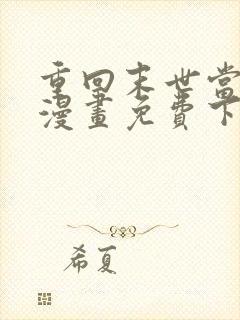 重回末世當
漫畫免費下
希夏